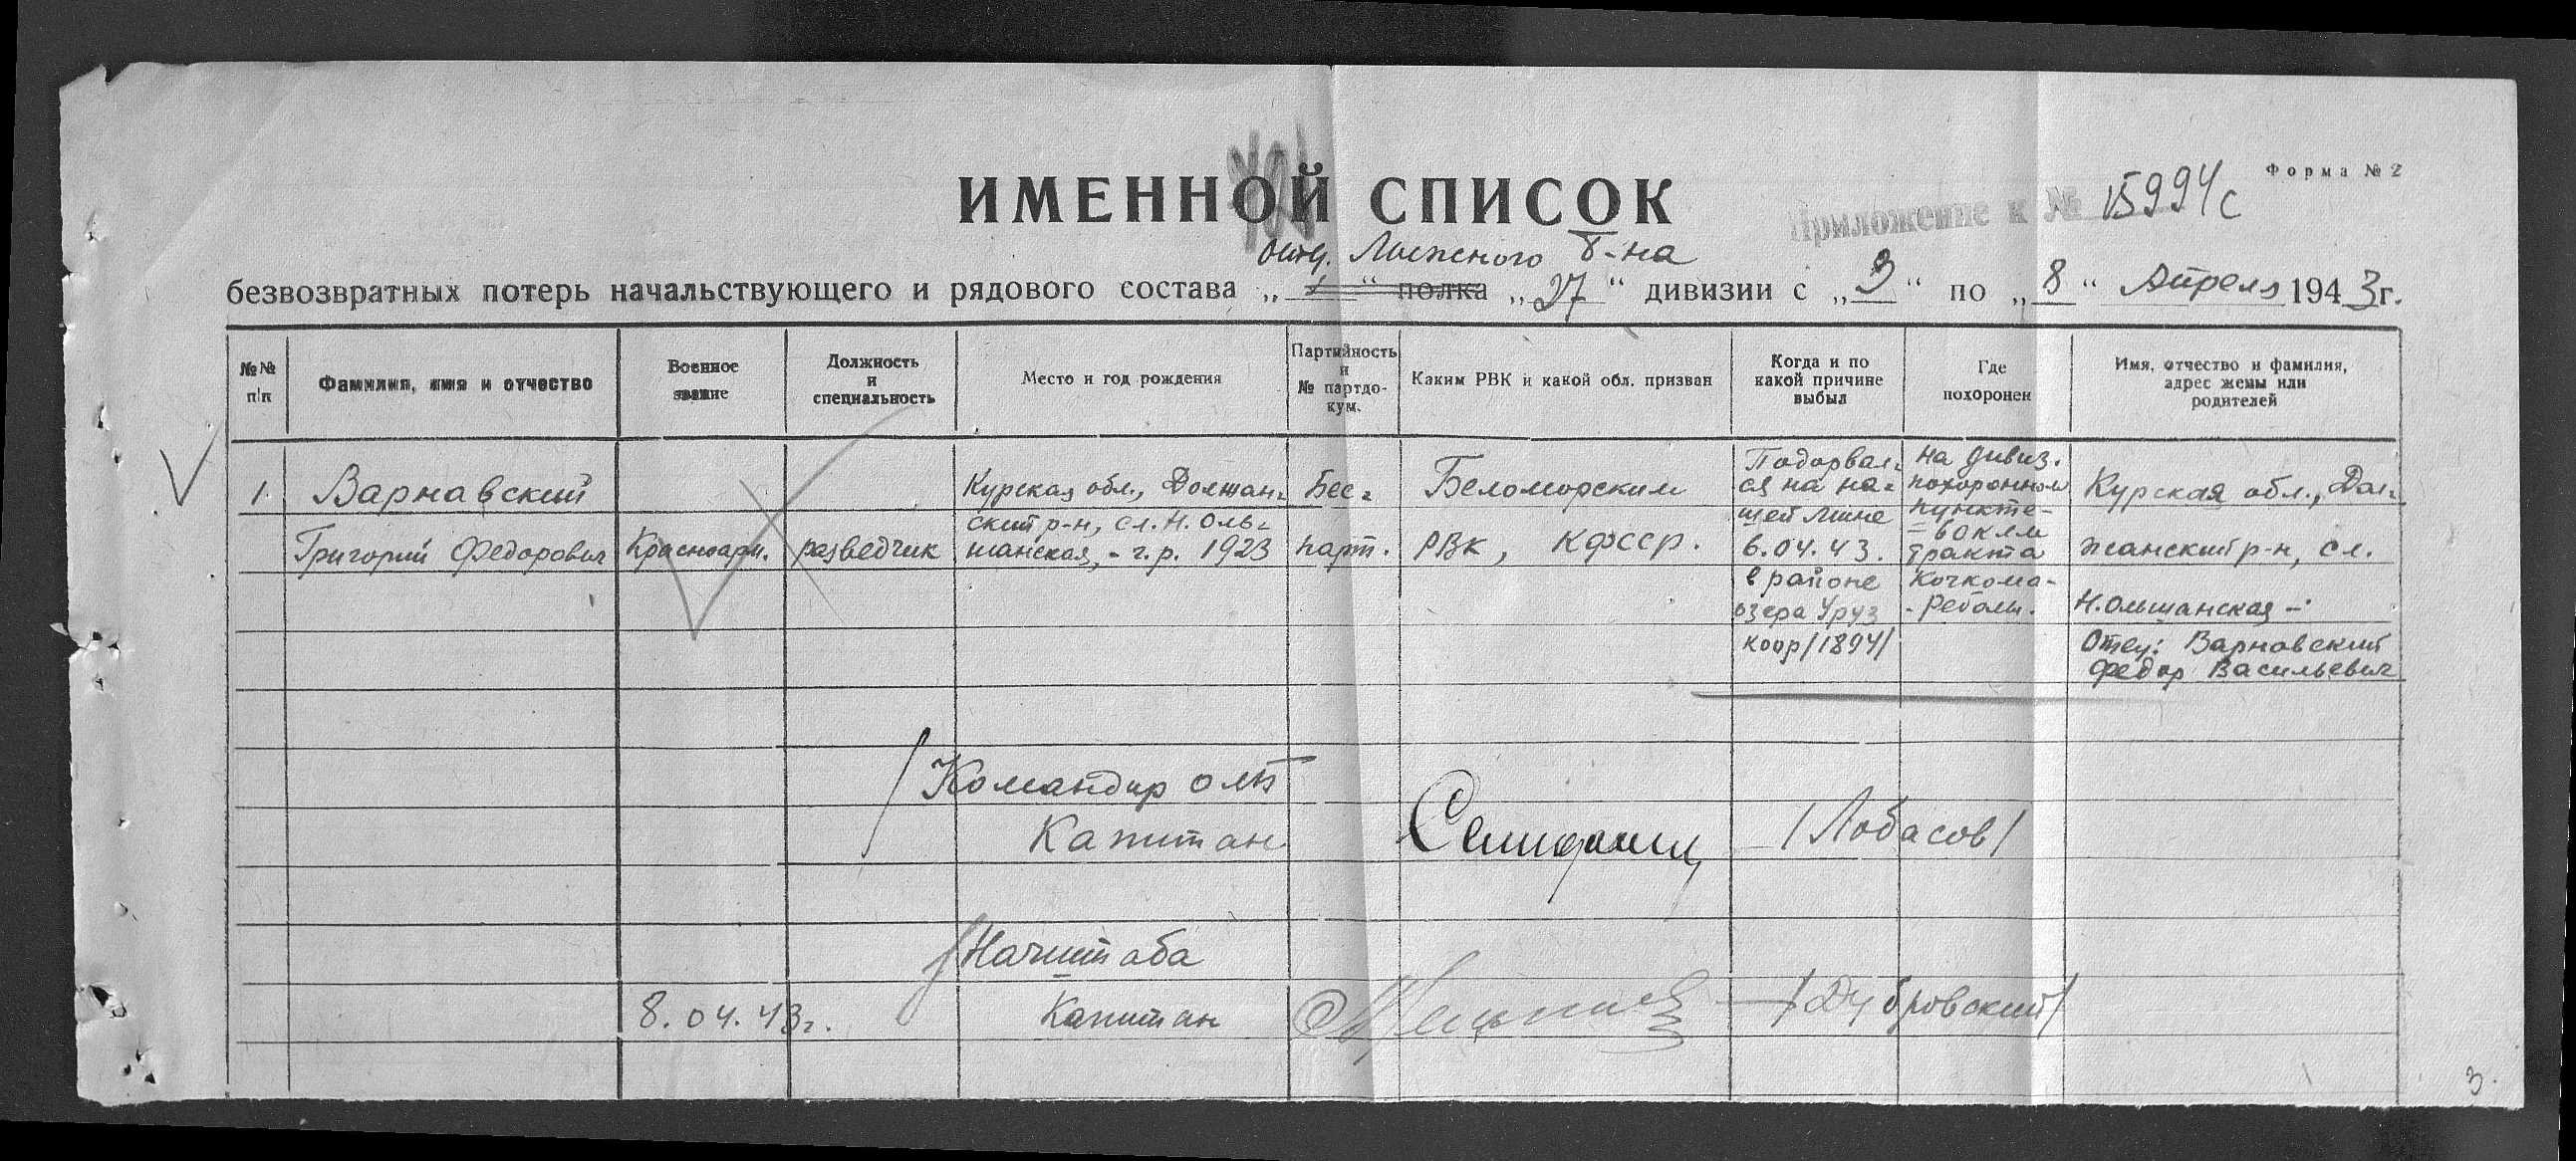 Форма № 2
ИМЕННОЙ СПИСОК
Приложение к № 15994с
отд. Лыжного б-на
безвозвратных потерь начальствующего и рядового состава „ “ полка „27“ дивизии с „3“ по „8“ Апреля 1943г.
№№ п/п
Фамилия, имя и отчество
Военное звание
Должность и специальность
Место и год рождения
Партийность и № партдокум.
Каким РВК и какой обл. призван
Когда и по какой причине выбыл
Где похоронен
Имя, отчество и фамилия, адрес жены или родителей
1.
Варнавский
Григорий Федорович
Красноарм.
разведчик
Курская обл., Должан-
ский р-н, сл. Н. Оль-
шанская, - г.р. 1923
Бес-
парт.
Беломорским
РВК, КФССР.
Подорвал-
ся на на-
шей мине
6.04.43.
в районе
озера Уруз
коор/1894/
на дивиз.
похоронном
пункте-
= 60 клм
тракта
Кочкома-
- Реболы.
Курская обл., Дол-
жанский р-н, сл.
Н. Ольшанская -
Отец: Варнавский
Федор Васильевич
Командир олб
Капитан
/Лобасов/
Начштаба
8.04.43г.
Капитан
/Дубровский/
3.